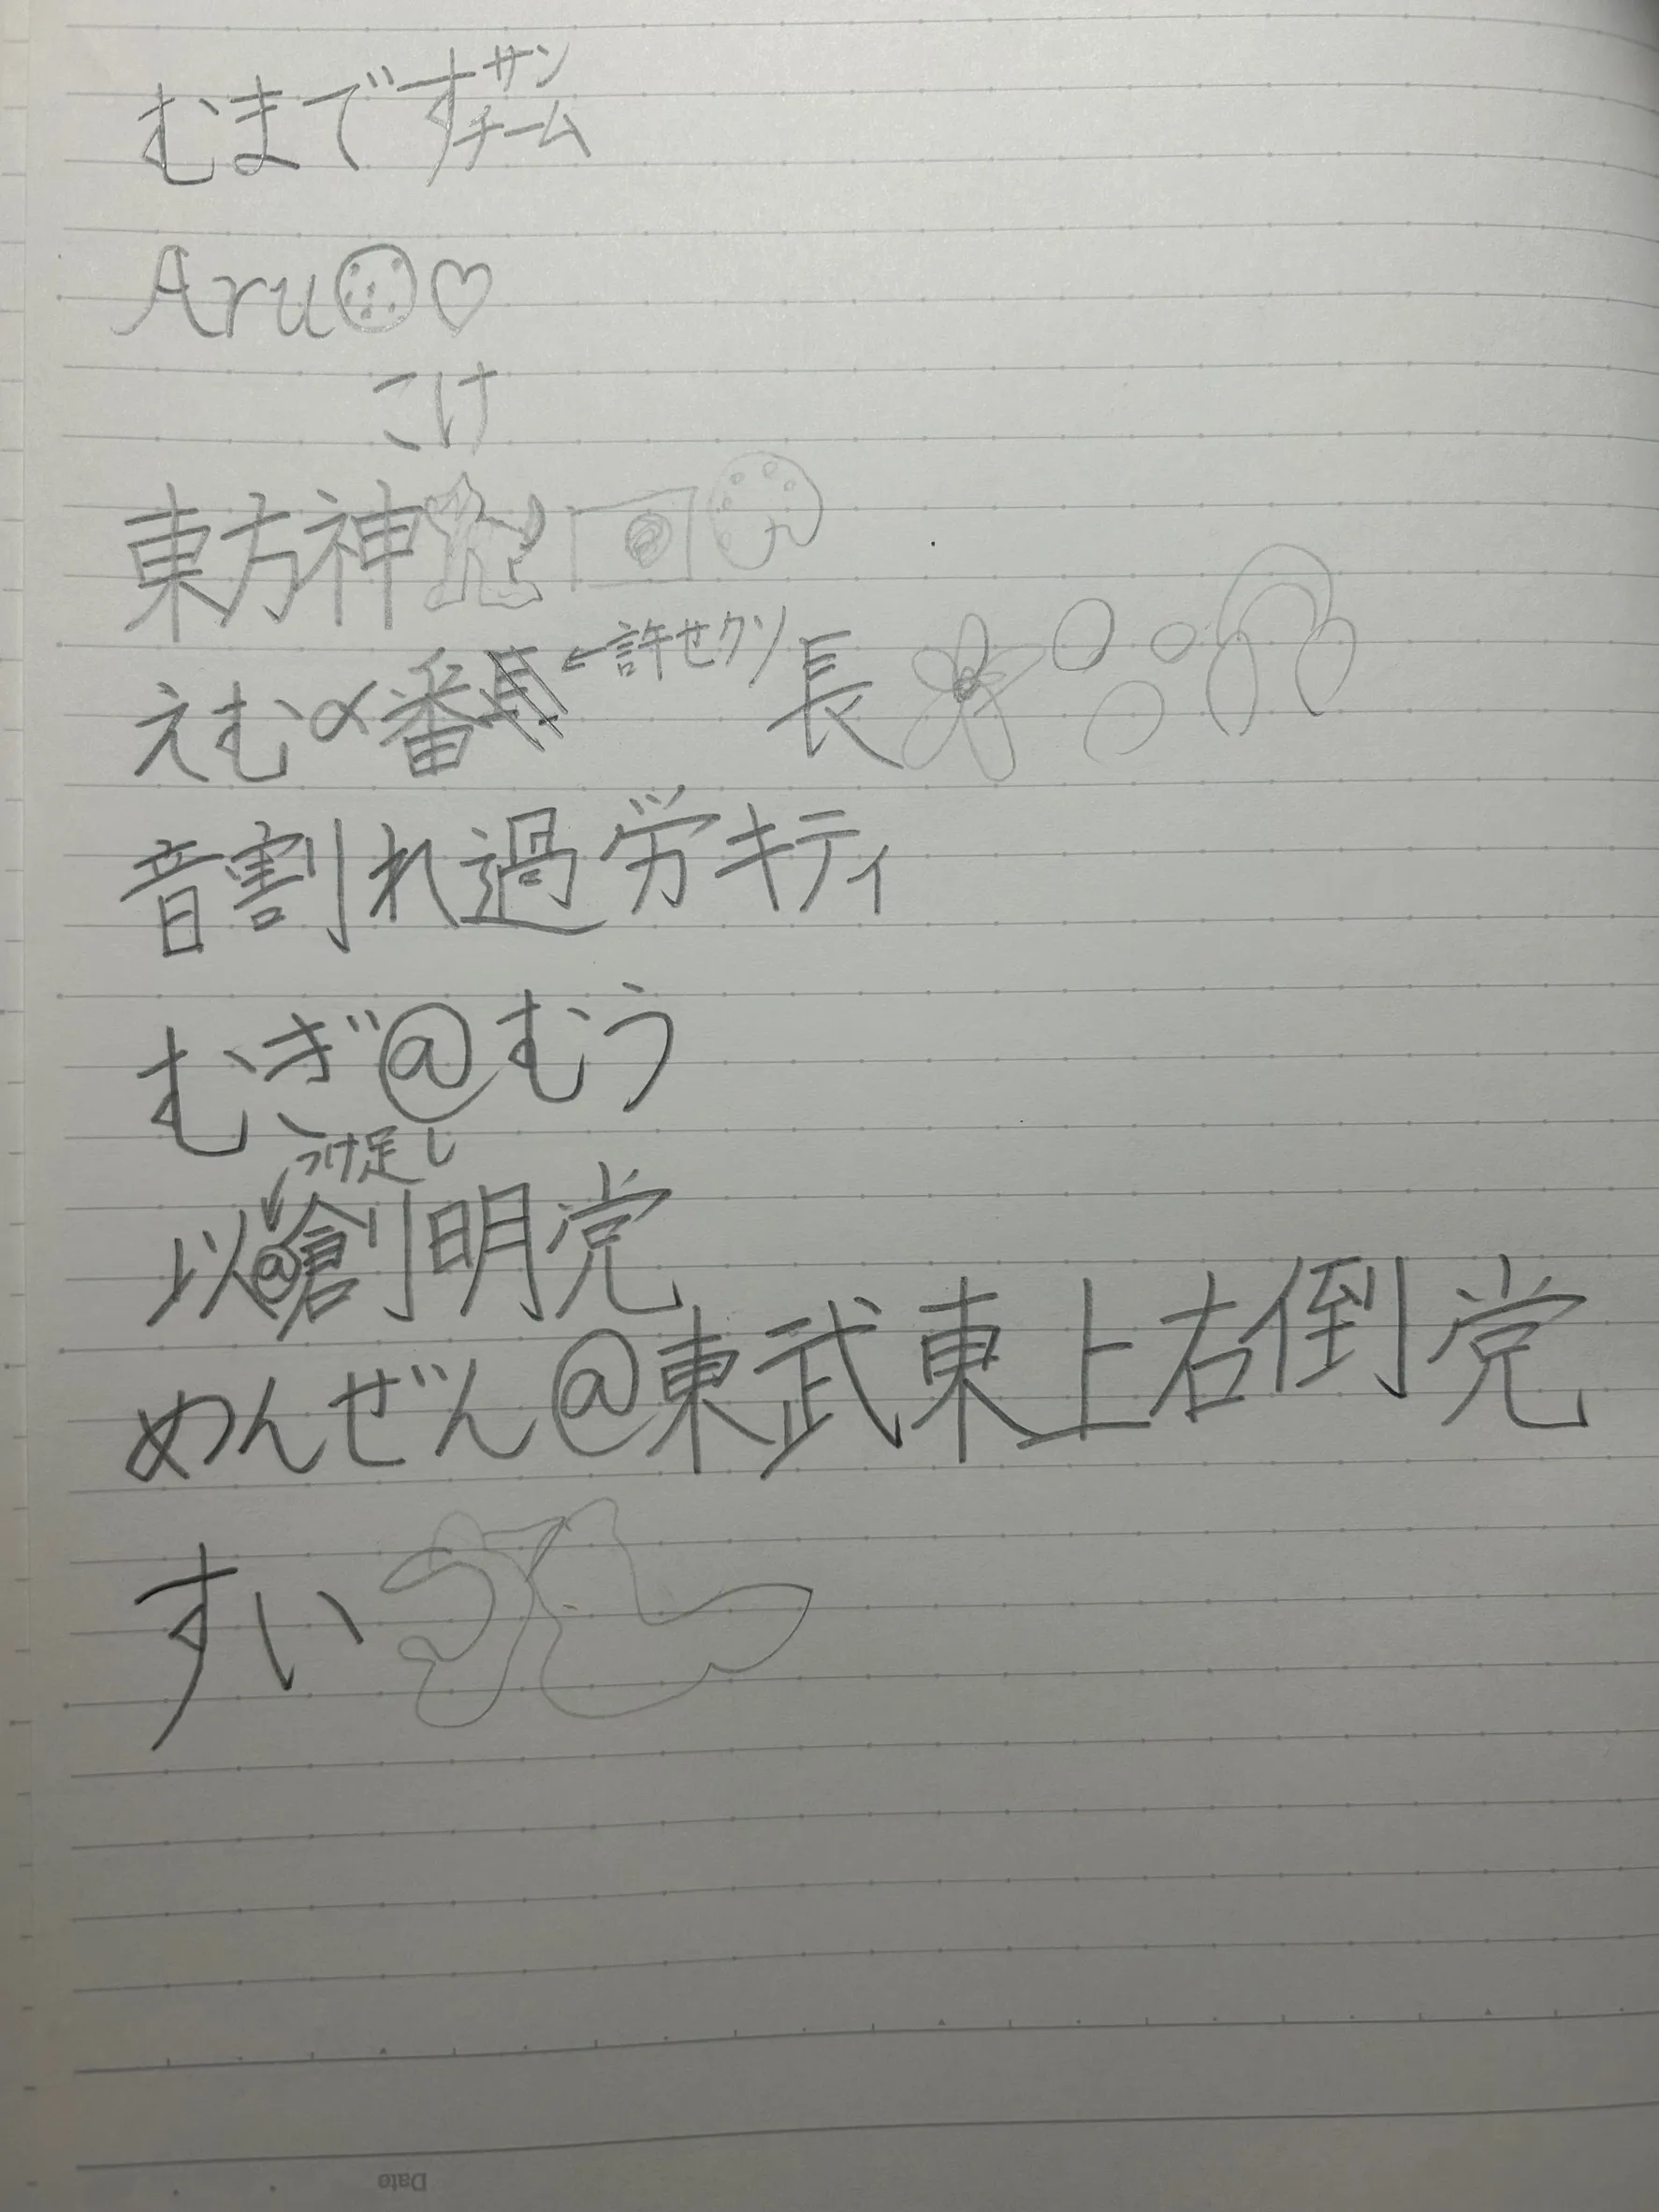 むまですサンチーム
Aru♡
こけ
東方神
えむ∝番長
←許せクソ
音割れ過労キティ
むぎ@むう
つけ足し
以@創明党
めんぜん@東武東上右倒党
すい